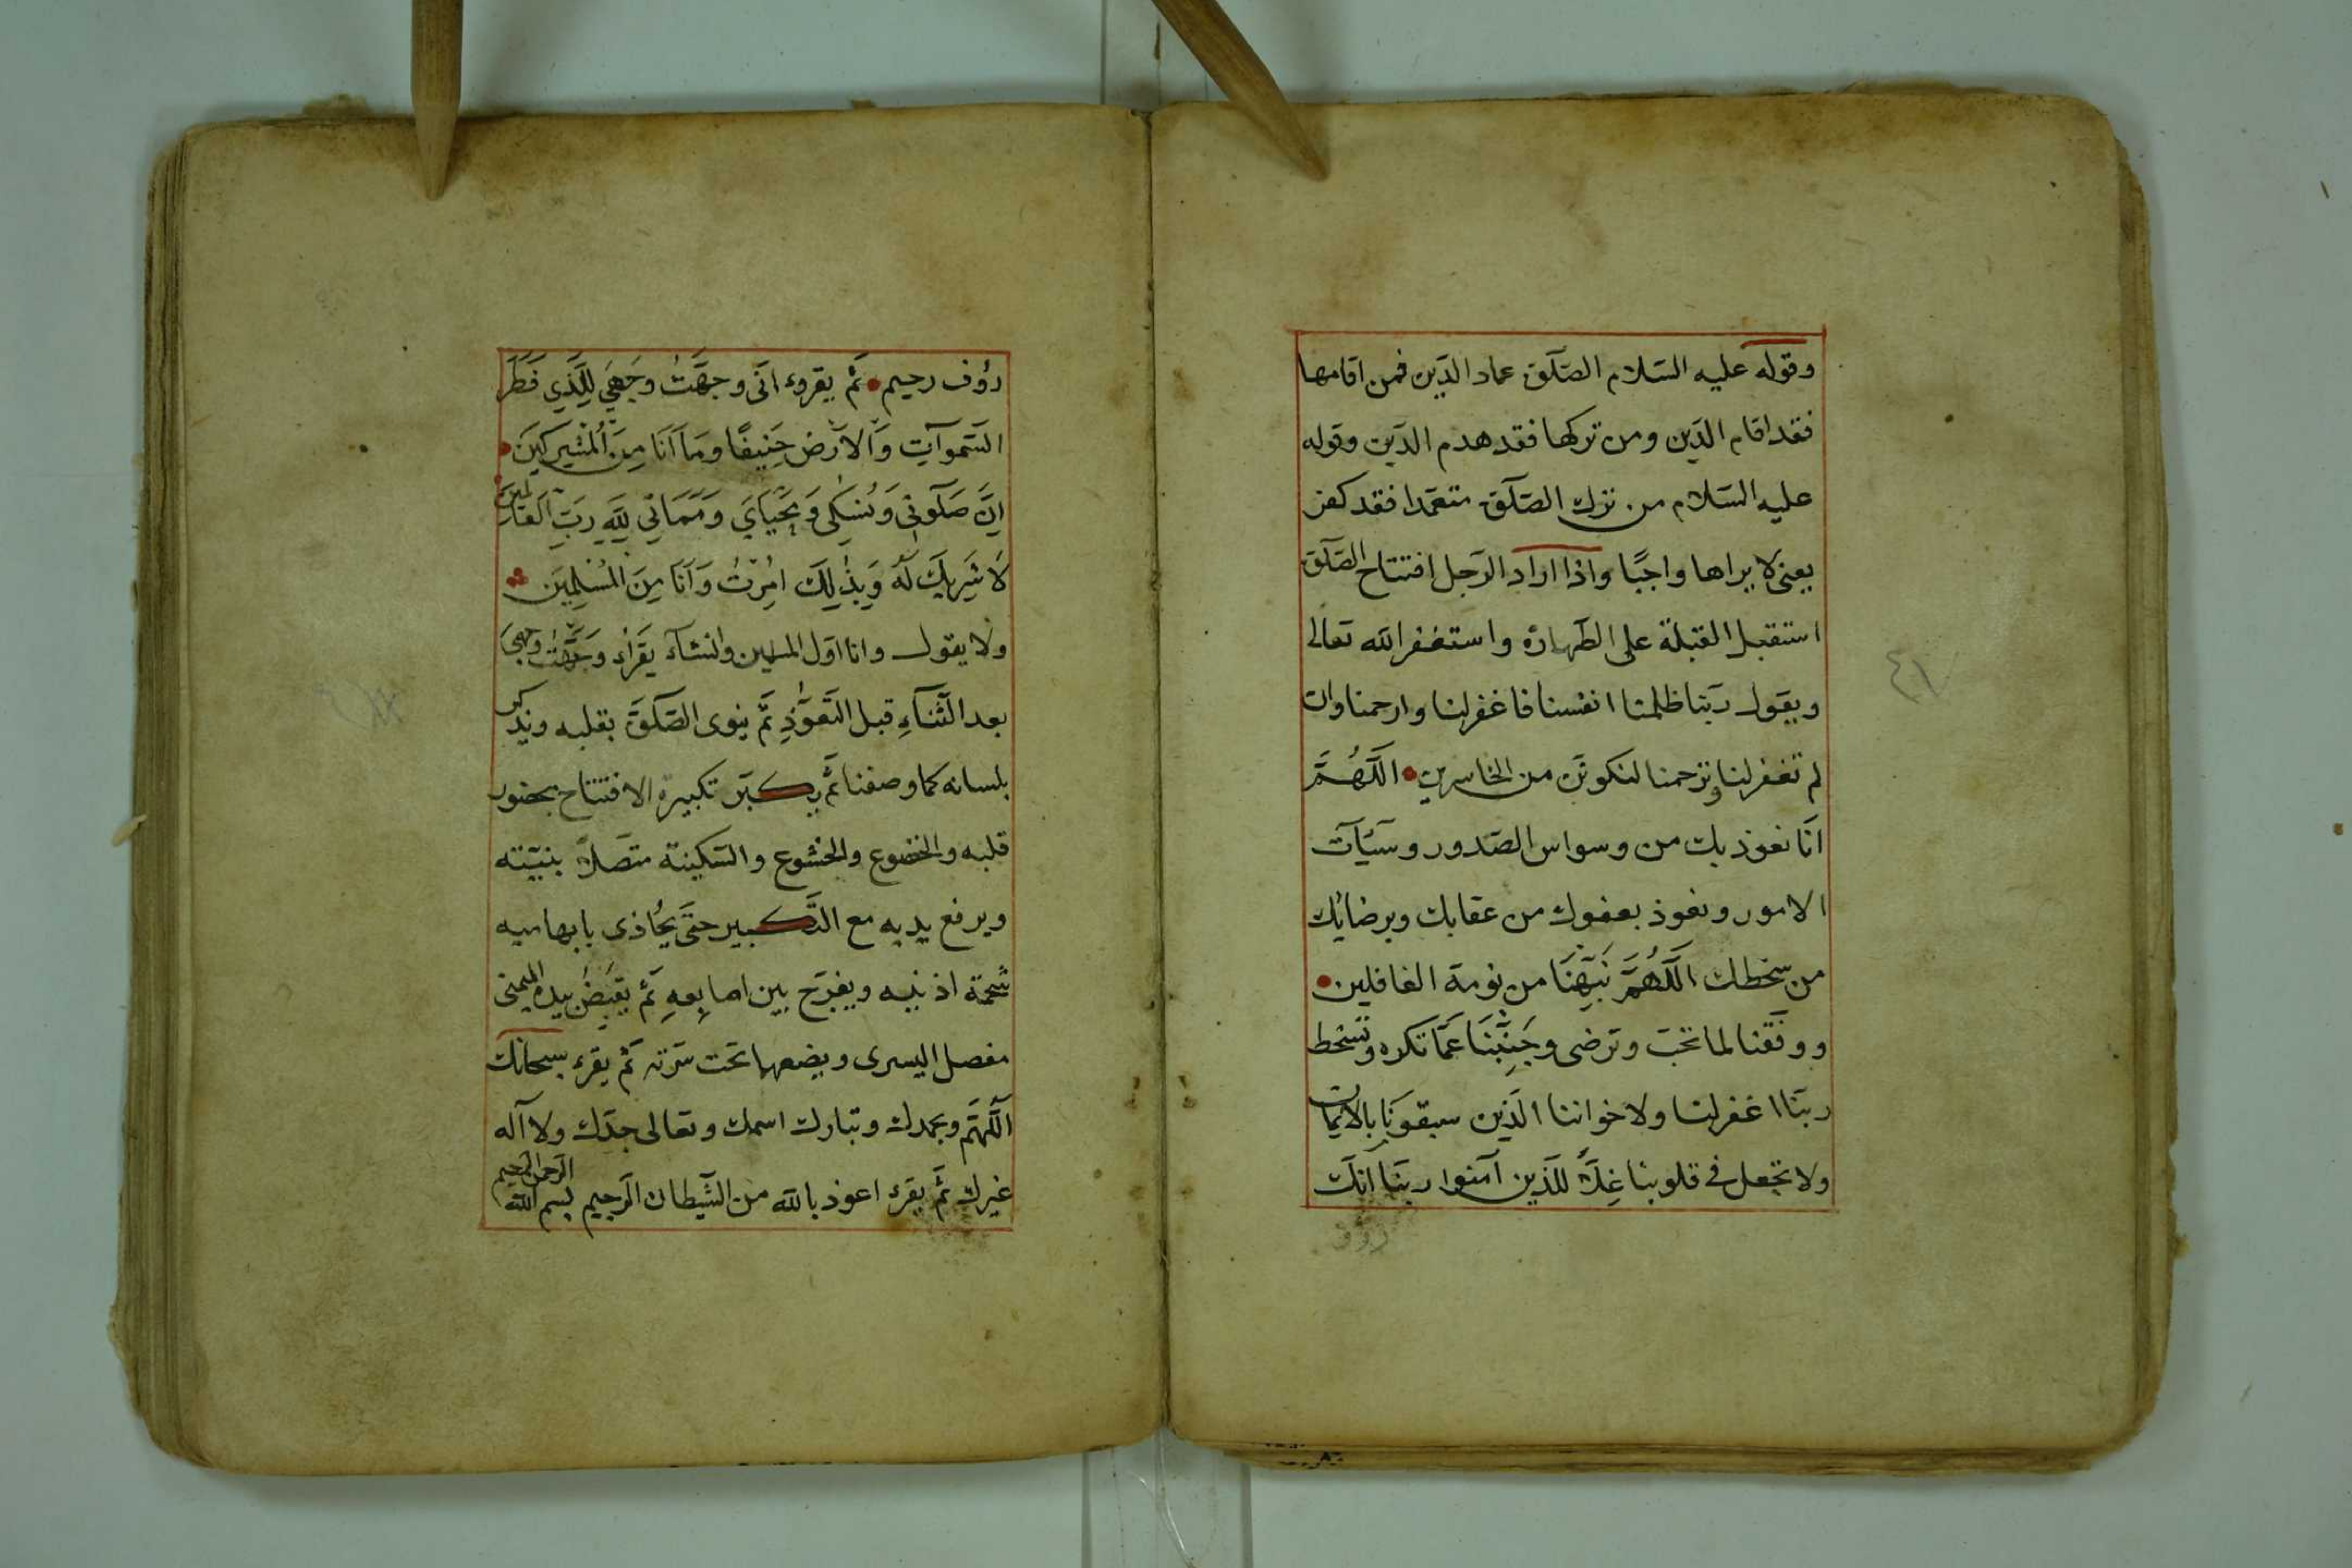 وقوله عليه السّلام الصّلٓوة عماد الدّين فمن اقامها
فقد اقام الدّين ومن تركها فقد هدم الدّين وقوله
عليه السّلام من ترك الصّلٓوة متعمّدا فقد كفر
يعنى لا يراها واجبًا واذا اراد الرّجل افتتاح الصّلٓوة
استقبل القبلة على الطّهارة واستغفر الله تعالى
ويقول ربّنا ظلمنا انفسنا فاغفرلنا وارحمنا وان
لم تغفرلنا وترحمنا لنكونّن من الخاسرين • اللّهُمَّ
انّا نعوذ بك من وسواس الصّدور وسيّئآت
الامور ونعوذ بعفوك من عقابك وبرضائك
من سخطك اللّهُمَّ نَبِّهْنَا من نومة الغافلين •
ووفّقنا لما تحبّ وترضى وجَنِّبْنَا عَمّا تكره وتسخط
ربّنا اغفرلنا ولاخواننا الّذين سبقونَا بالايمان
ولا تجعل فى قلوبنا غِلًّا للّذين آمنوا ربّنا انّك
روف
رؤف رحيم • ثمّ يقروء انّى وجهَّتُ وجَهِيَ لِلَّذِي فَطَرَ
السّموآتِ وَالاَرْضَ حَنِيفًا وَمَا اَنَا مِنَ الْمُشْرِكِينَ •
اِنَّ صَلٓوتِى وَنُسُكِى وَمَحْيَايَ وَمَمَاتِي لِلّٰهِ رَبِّ الْعَالَمِينَ
لَا شَرِيكَ لَهُ وَبِذٰلِكَ اُمِرْتُ وَاَنَا مِنَ الْمُسْلِمِينَ
ولا يقول وانا اوّل المسلمين والنشآء يَقْرَاُ وَجَّهْتُ وجهِىَ
بعد الثّنآءِ قبل التّعوّذِ ثمّ ينوى الصّلٓوةَ بقلبه ويذكر
بلسانه كما وصفنا ثمّ يكبّر تكبيرة الافتتاح بحضور
قلبه والخضوع والخشوع والسّكينة متّصلاً بنيّته
ويرفع يديه مع التّكبير حتّى يُحاذى بابهاميه
شحمة اذنيه ويفرّج بين اصابِعِهِ ثمّ يَقْبِضُ بيده اليمنى
مفصل اليسرى ويضعها تحت سرّته ثمّ يقرء سبحانك
اللّهمّ وبحمدك وتبارك اسمك وتعالى جدّك ولا آله
غيرك ثمّ يقرء اعوذ بالله من الشّيطان الرّجيم بسم الله الرّحمن الرّحيم